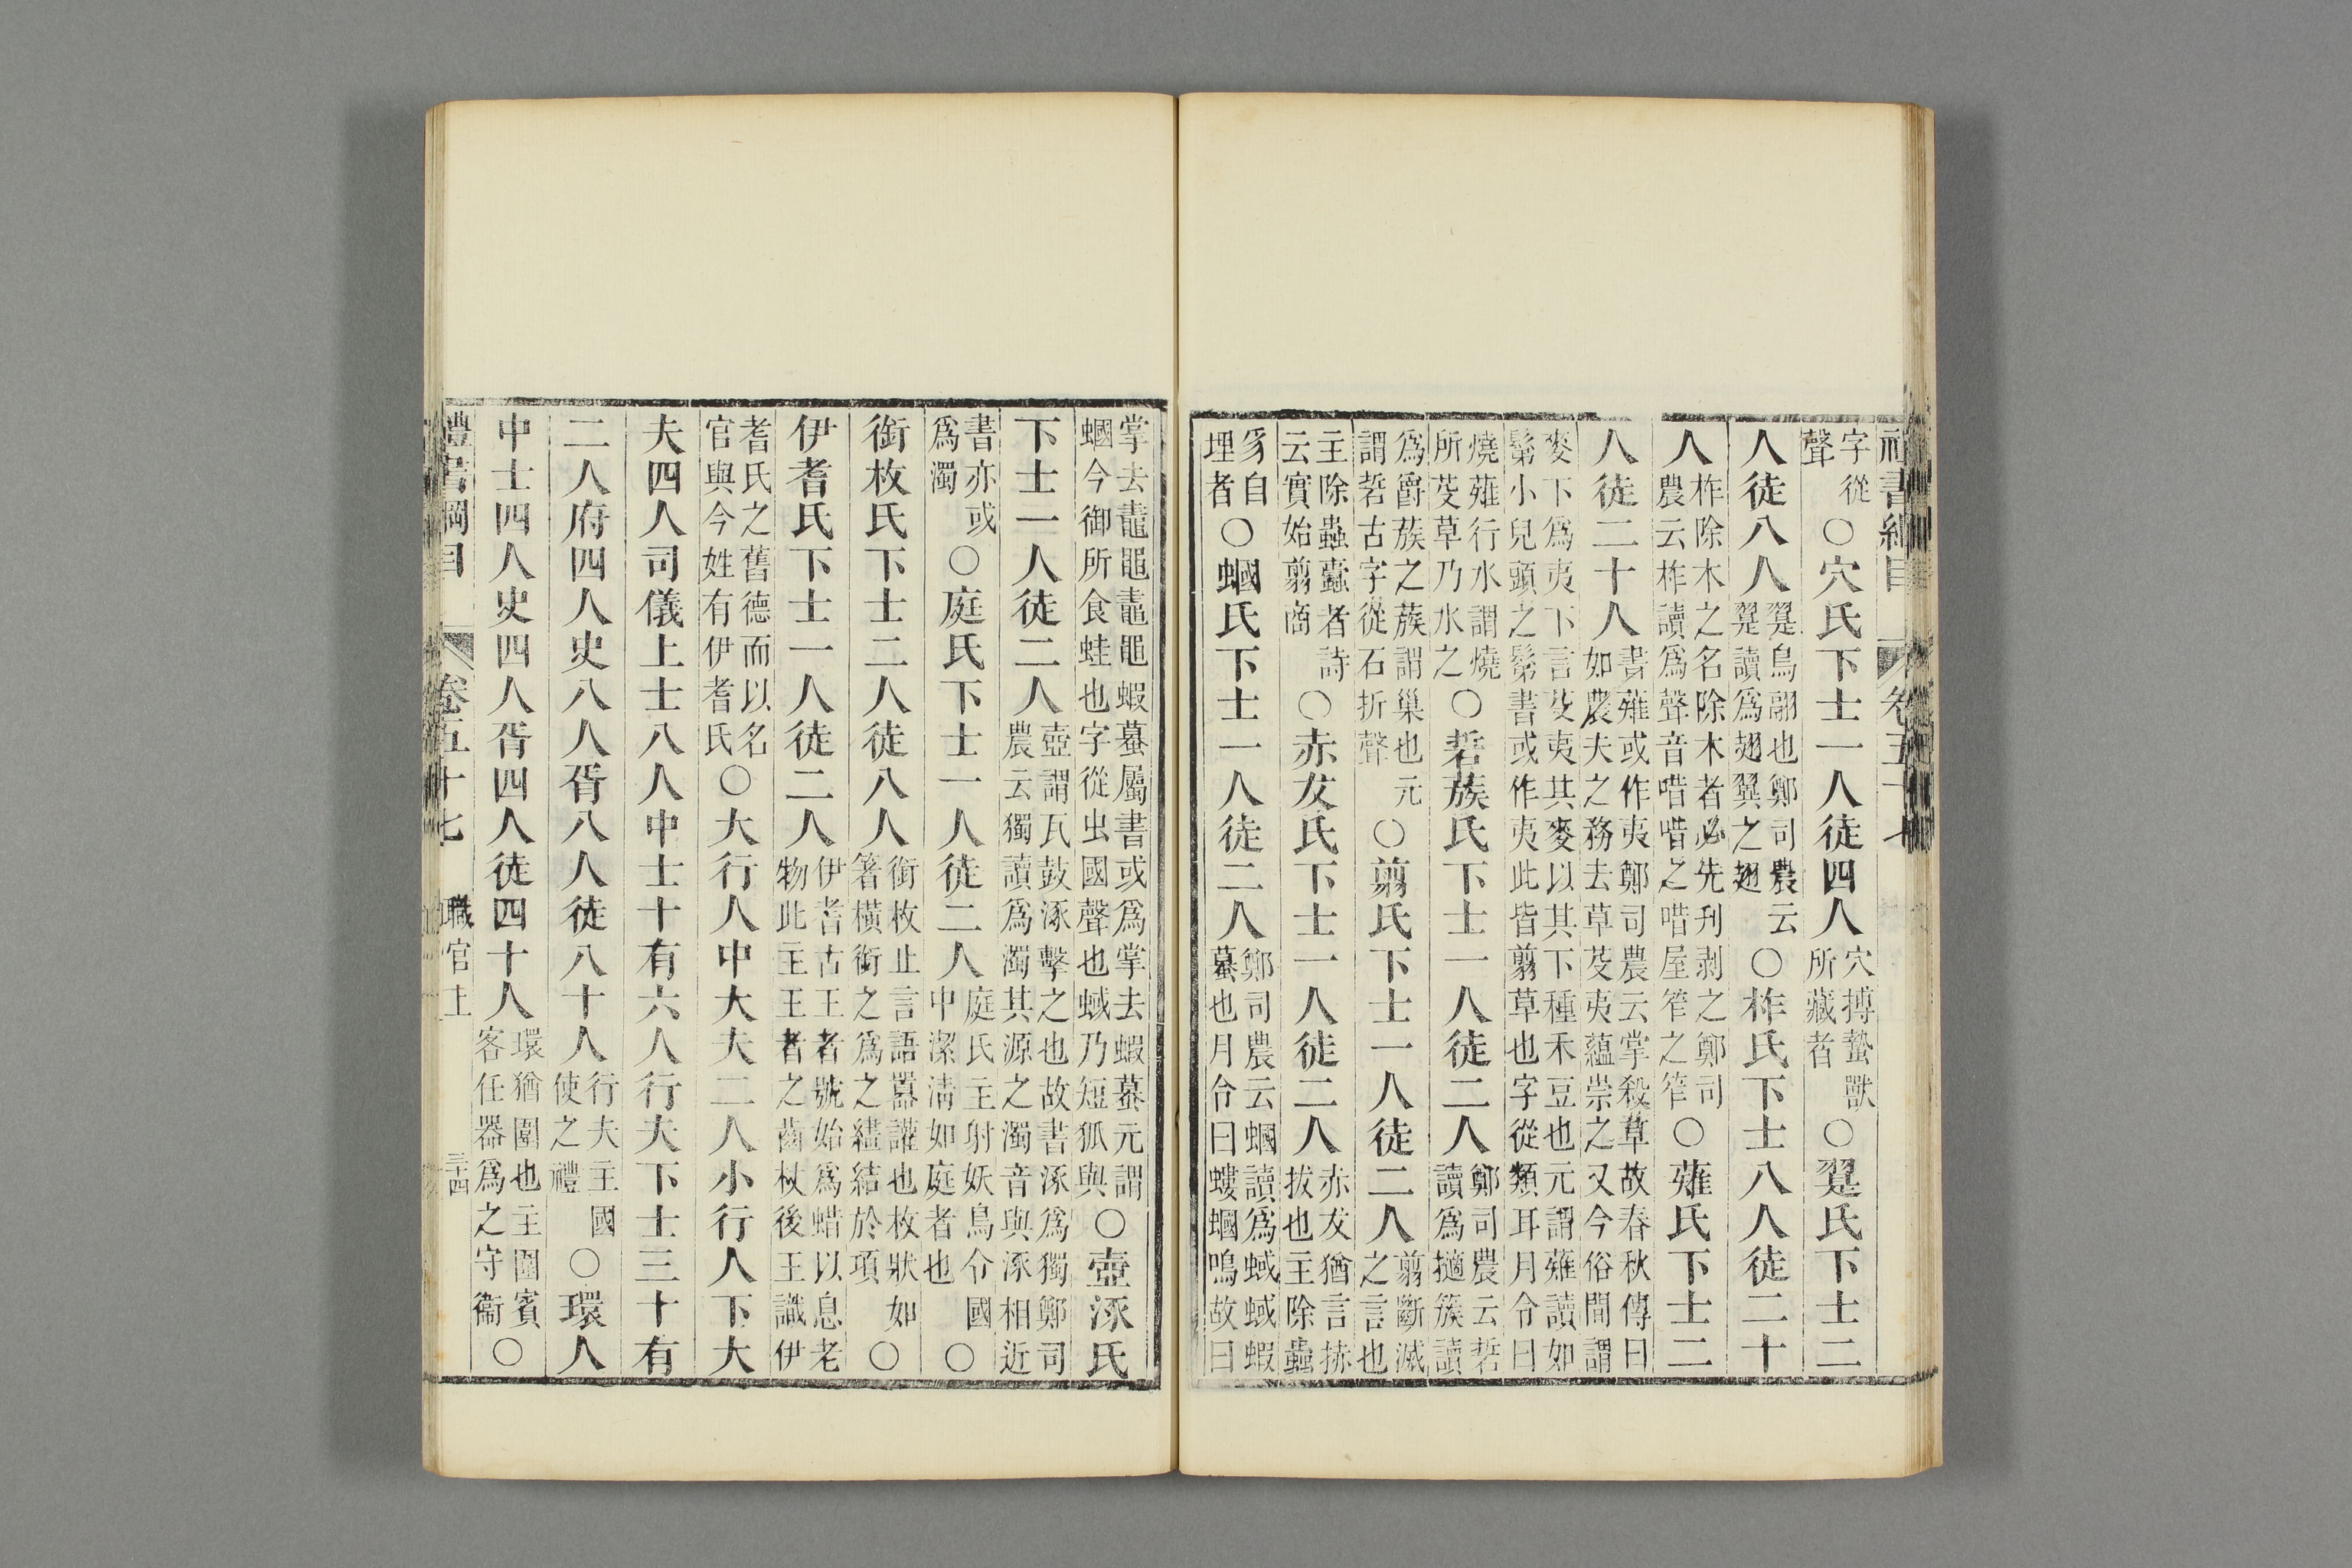 禮書綱目 卷五十七
字從聲○穴氏下士一人徒四人穴搏蟄獸所藏者○翨氏下士二
人徒八人翨鳥翮也鄭司農云翨讀爲翅翼之翅○柞氏下士八人徒二十
人柞除木之名除木者必先刋剥之鄭司農云柞讀爲聲音唶唶之唶屋笮之笮○薙氏下士二
人徒二十人書薙或作夷鄭司農云掌殺草故春秋傳曰如農夫之務去草芟夷蘊崇之又今俗間謂
麥下爲夷下言芟夷其麥以其下種禾豆也元謂薙讀如鬀小兒頭之鬀書或作夷此皆翦草也字從類耳月令曰
燒薙行水謂燒所芟草乃水之○硩蔟氏下士一人徒二人鄭司農云硩讀爲擿蔟讀
爲爵蔟之蔟謂巢也元謂硩古字從石折聲○翦氏下士一人徒二人翦斷滅之言也
主除蟲蠹者詩云實始翦商○赤犮氏下士一人徒二人赤犮猶言捇拔也主除蟲
豸自埋者○蟈氏下士一人徒二人鄭司農云蟈讀爲蜮蜮蝦蟇也月令曰螻蟈鳴故曰
掌去鼃黽鼃黽蝦蟇屬書或爲掌去蝦蟇元謂蟈今御所食蛙也字從虫國聲也蜮乃短狐與○壺涿氏
下士一人徒二人壺謂瓦鼓涿擊之也故書涿爲獨鄭司農云獨讀爲濁其源之濁音與涿相近
書亦或爲濁○庭氏下士一人徒二人庭氏主射妖鳥令國中潔淸如庭者也○
銜枚氏下士二人徒八人銜枚止言語囂讙也枚狀如箸橫銜之爲之繣結於項○
伊耆氏下士一人徒二人伊耆古王者號始爲蜡以息老物此主王者之齒杖後王識伊
耆氏之舊德而以名官與今姓有伊耆氏○大行人中大夫二人小行人下大
夫四人司儀上士八人中士十有六人行夫下士三十有
二人府四人史八人胥八人徒八十人行夫主國使之禮○環人
中士四人史四人胥四人徒四十人環猶圍也主圍賓客任器爲之守衞○
禮書綱目 卷五十七 職官上 三十四